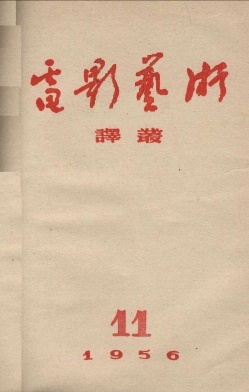 電影藝術
譯叢
11
1956